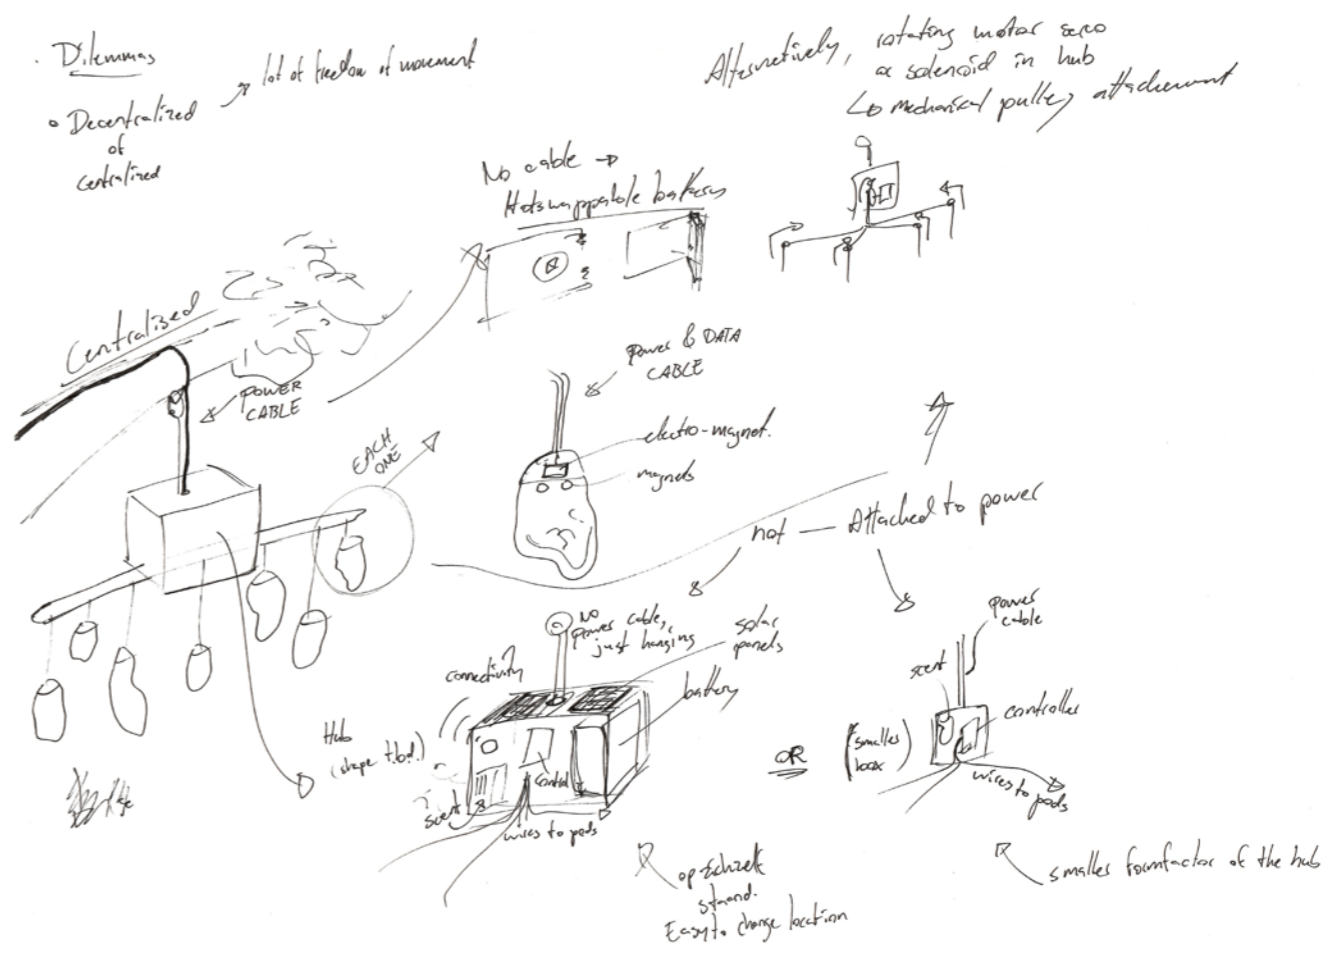 Dilemmas
Decentralized
of
centralized
lot of freedom of movement
Alternatively, rotating motor servo
or solenoid in hub
mechanical pulley attachement
No cable →
Hotswappable batterys
Centralized
POWER
CABLE
EACH
ONE
power & DATA
CABLE
electro-magnet.
magnets
not — Attached to power
No
power cable,
just hanging
solar
panels
connectivity
battery
Hub
(shape t.b.d.)
control
scent
wires to pods
OR
(smaller
box)
power
cable
scent
controller
wires to pods
opzichzelf
staand.
Easy to change location
smaller formfactor of the hub